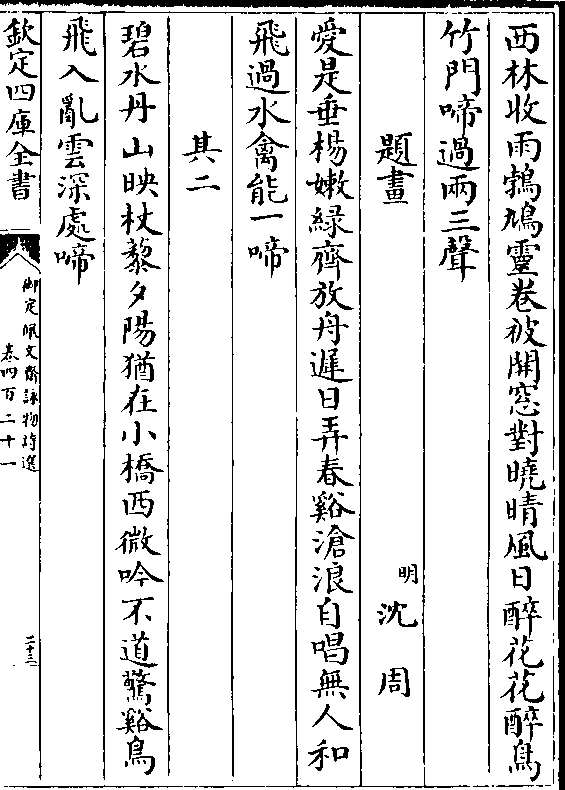 西林收雨鵓鳩靈卷被開窓對曉晴風日醉花花醉鳥
竹門啼過兩三聲
題畫
明沈周
愛是垂楊嫩綠齊放舟遲日弄春谿滄浪自唱無人和
飛過水禽能一啼
其二
碧水丹山映杖藜夕陽猶在小橋西微吟不道驚谿鳥
飛入亂雲深處啼
欽定四庫全書
御定佩文齋詠物詩選
卷四百二十一
二十三